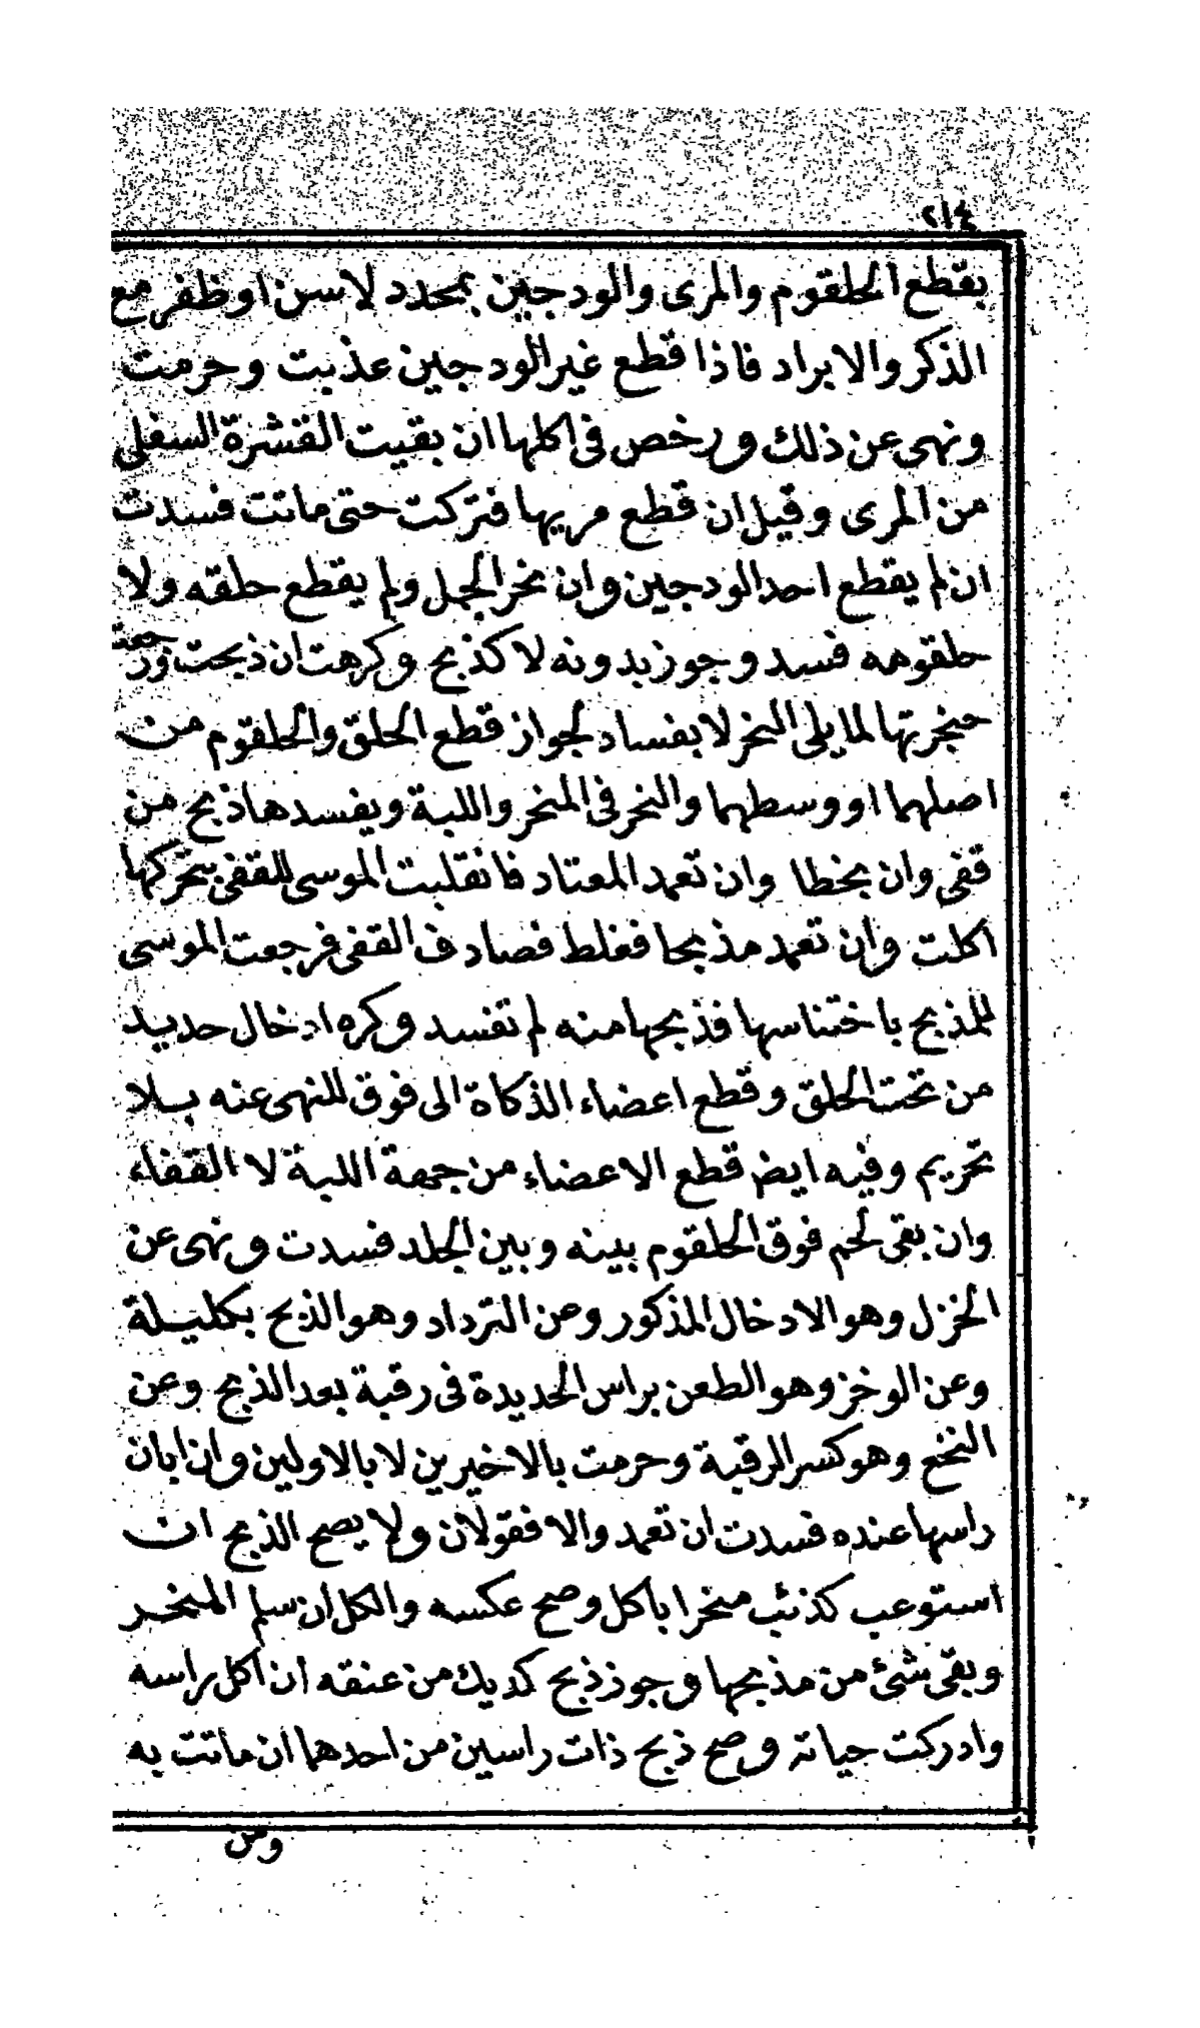 ٢١٤
بقطع الحلقوم والمرى والودجين بمحدد لا سن او ظفر مع
الذكر والايراد فاذا قطع غير الودجين عذبت وحرمت
ونهى عن ذلك ورخص فى اكلها ان بقيت القشرة السفلى
من المرى وقيل ان قطع مريها فتركت حتى ماتت فسدت
ان لم يقطع احد الودجين وان نحر الجمل ولم يقطع حلقه ولا
حلقومه فسد وجوز بدونه لا كذبح وكرهت ان ذبحت ورجعت
حنجرتها لما يلى النحر لا بفساد لجواز قطع الحلق والحلقوم من
اصلهما او وسطهما والنحر فى المنحر واللبة ويفسدها ذبح من
قفى وان بخطا وان تعمد المعتاد فانقلبت الموسى للقفى بتحركها
اكلت وان تعمد مذبحا فغلط فصادف القفى فرجعت الموسى
للمذبح باختناسها فذبحها منه لم تفسد وكره ادخال حديد
من تحت الحلق وقطع اعضاء الذكاة الى فوق للنهى عنه بلا
تحريم وفيه ايض قطع الاعضاء من جهة اللبة لا القفاء
وان بقى لحم فوق الحلقوم بينه وبين الجلد فسدت ونهى عن
الخزل وهو الادخال المذكور وعن الترداد وهو الذبح بكليلة
وعن الوخز وهو الطعن براس الحديدة فى رقبة بعد الذبح وعن
النخع وهو كسر الرقبة وحرمت بالاخيرين لا بالاولين وان ابان
راسها عنده فسدت ان تعمد والا فقولان ولا يصح الذبح ان
استوعب كذئب منحرا باكل وصح عكسه والكل ان سلم المنحر
وبقى شئ من مذبحها وجوز ذبح كديك من عنقه ان اكل راسه
وادركت حياته وصح ذبح ذات راسين من احدهما ان ماتت به
ومن